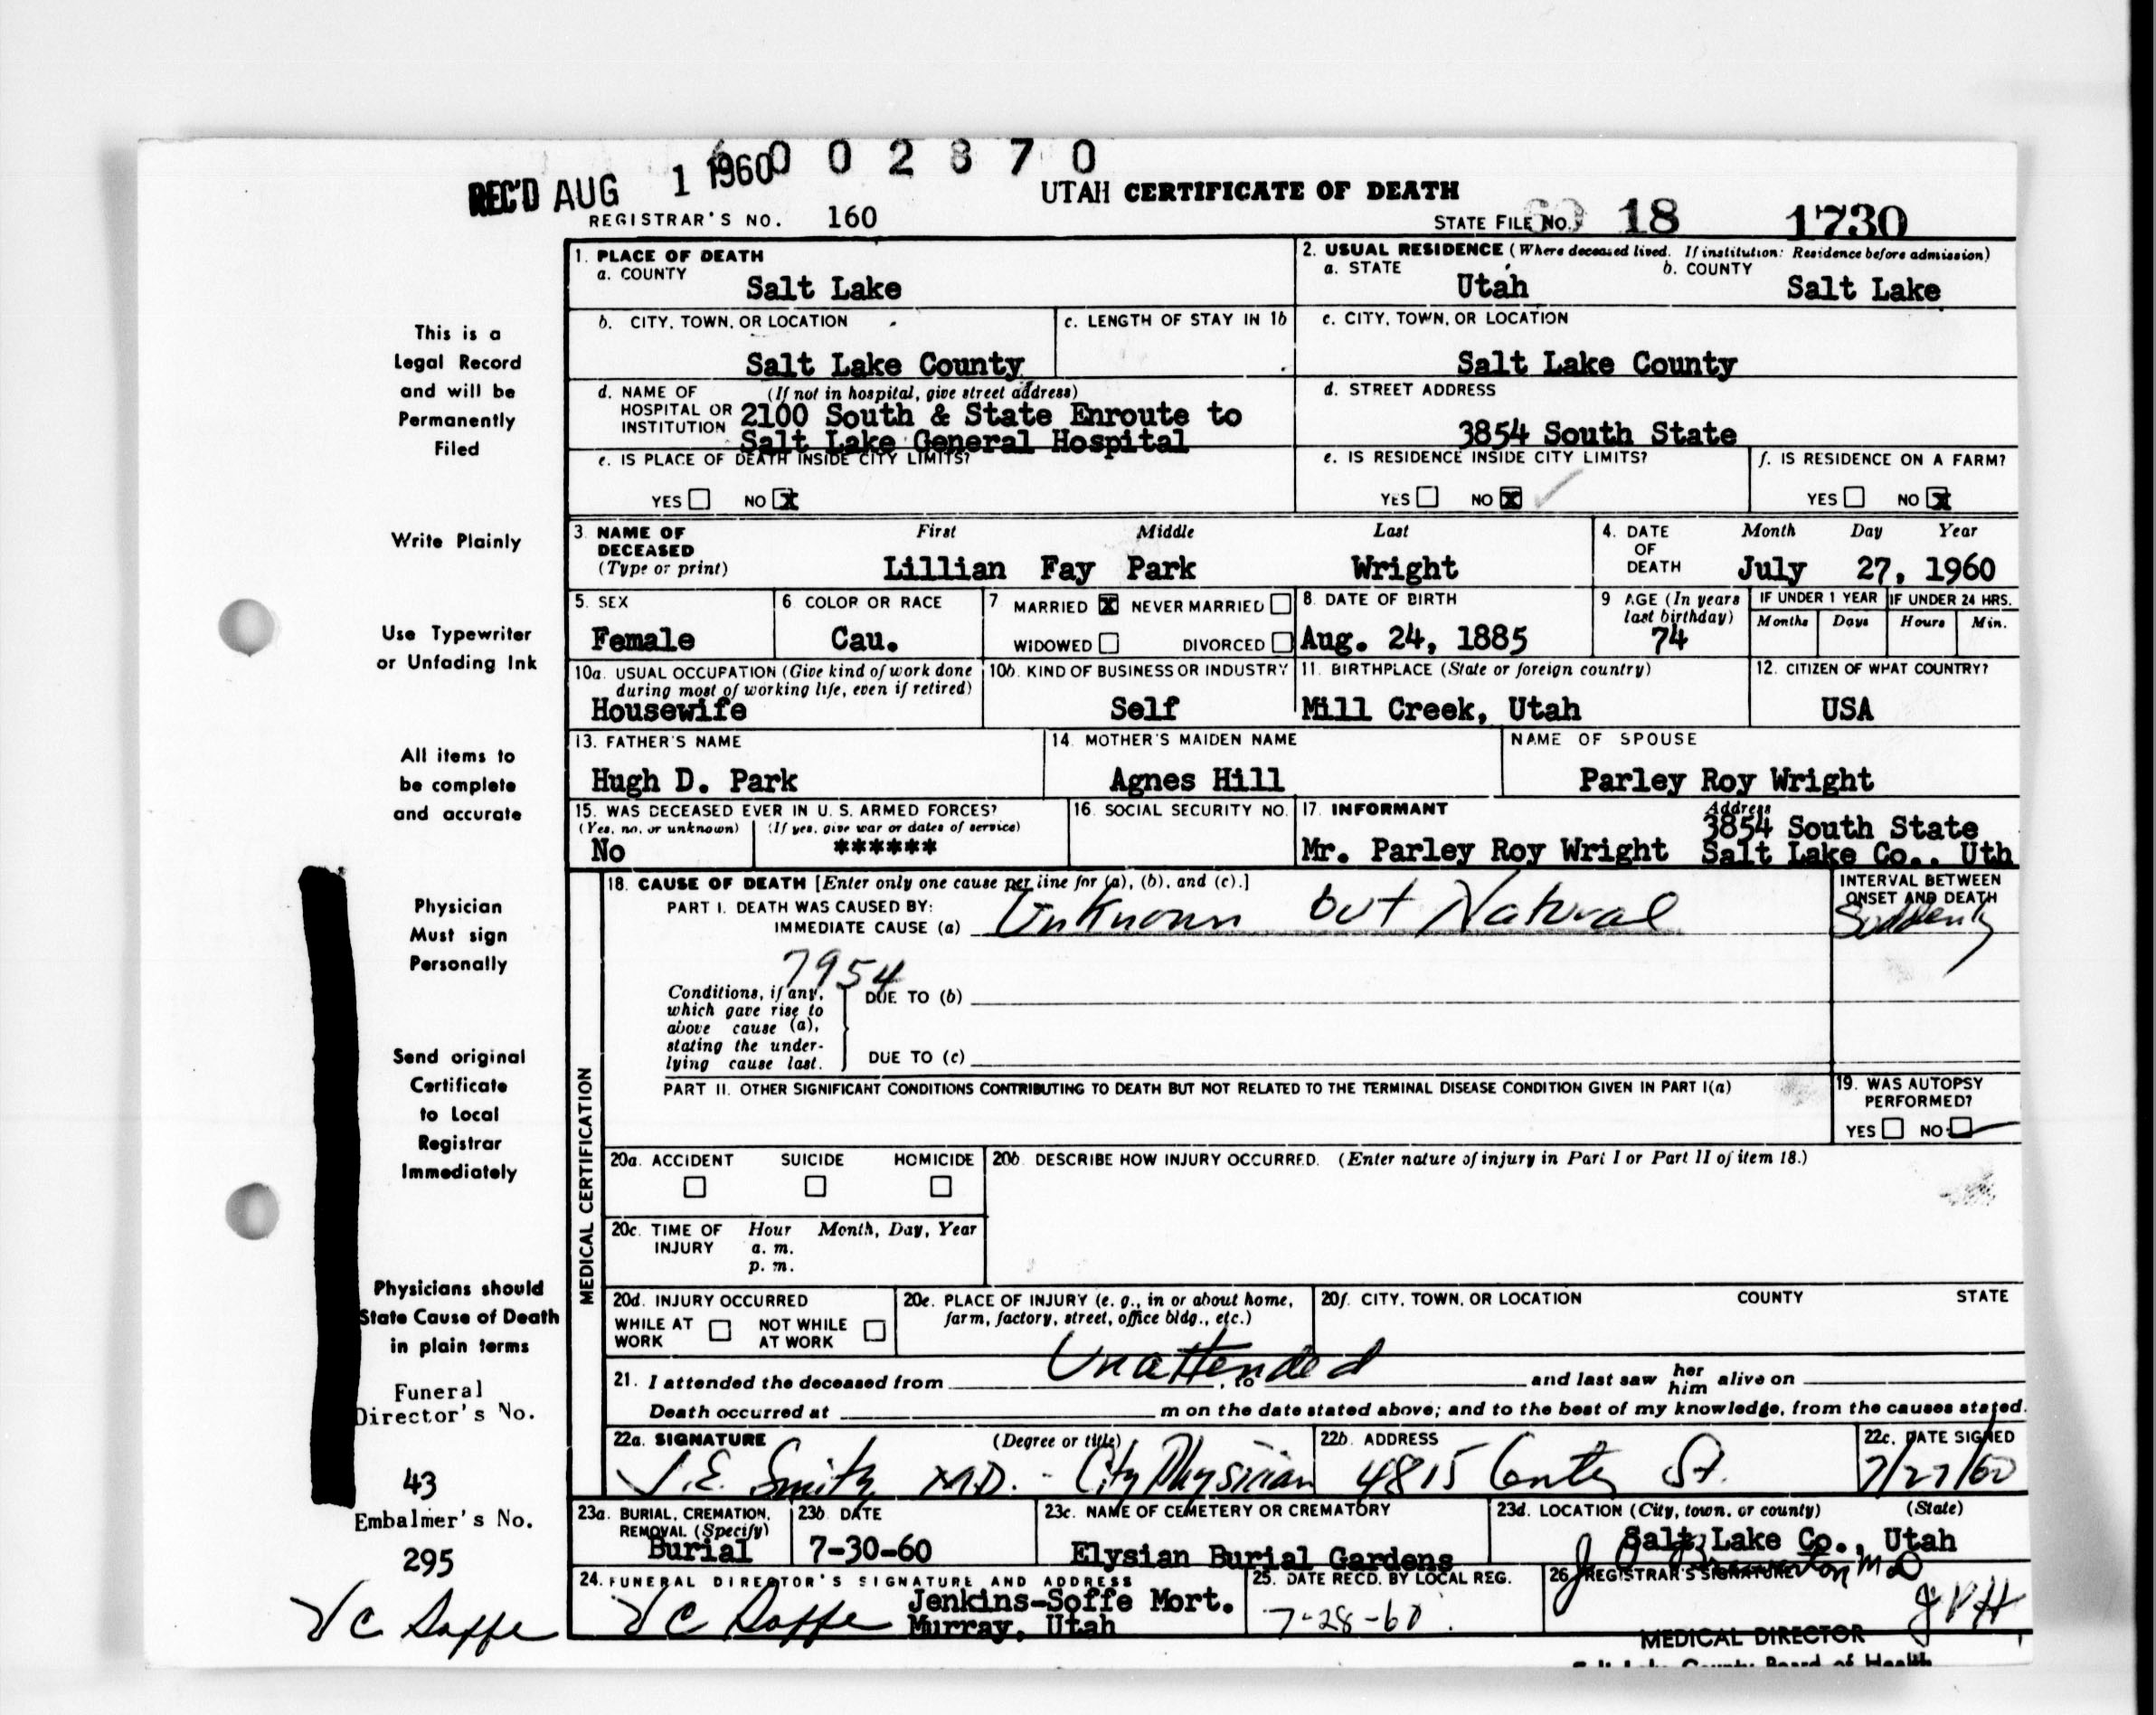 6 0 0 2 8 7 0
REC'D AUG 1 1960
UTAH CERTIFICATE OF DEATH
REGISTRAR'S NO. 160
STATE FILE NO. 60 18 1730
This is a
Legal Record
and will be
Permanently
Filed
Write Plainly
Use Typewriter
or Unfading Ink
All items to
be complete
and accurate
Physician
Must sign
Personally
Send original
Certificate
to Local
Registrar
Immediately
Physicians should
State Cause of Death
in plain terms
Funeral
Director's No.
43
Embalmer's No.
295
V C Soffe
1. PLACE OF DEATH
a. COUNTY
Salt Lake
2. USUAL RESIDENCE (Where deceased lived. If institution: Residence before admission)
a. STATE b. COUNTY
Utah Salt Lake
b. CITY, TOWN, OR LOCATION
Salt Lake County
c. LENGTH OF STAY IN 1b
c. CITY, TOWN, OR LOCATION
Salt Lake County
d. NAME OF (If not in hospital, give street address)
HOSPITAL OR
INSTITUTION
2100 South & State Enroute to
Salt Lake General Hospital
d. STREET ADDRESS
3854 South State
e. IS PLACE OF DEATH INSIDE CITY LIMITS?
YES NO X
e. IS RESIDENCE INSIDE CITY LIMITS?
YES NO X
f. IS RESIDENCE ON A FARM?
YES NO X
3. NAME OF
DECEASED
(Type or print)
First Middle Last
Lillian Fay Park Wright
4. DATE
OF
DEATH
Month Day Year
July 27, 1960
5. SEX
Female
6. COLOR OR RACE
Cau.
7. MARRIED X NEVER MARRIED
WIDOWED DIVORCED
8. DATE OF BIRTH
Aug. 24, 1885
9. AGE (In years
last birthday)
74
IF UNDER 1 YEAR
Months Days
IF UNDER 24 HRS.
Hours Min.
10a. USUAL OCCUPATION (Give kind of work done
during most of working life, even if retired)
Housewife
10b. KIND OF BUSINESS OR INDUSTRY
Self
11. BIRTHPLACE (State or foreign country)
Mill Creek, Utah
12. CITIZEN OF WHAT COUNTRY?
USA
13. FATHER'S NAME
Hugh D. Park
14. MOTHER'S MAIDEN NAME
Agnes Hill
NAME OF SPOUSE
Parley Roy Wright
15. WAS DECEASED EVER IN U. S. ARMED FORCES?
(Yes, no, or unknown) (If yes, give war or dates of service)
No ******
16. SOCIAL SECURITY NO.
17. INFORMANT Address
Mr. Parley Roy Wright
3854 South State
Salt Lake Co., Uth
MEDICAL CERTIFICATION
18. CAUSE OF DEATH [Enter only one cause per line for (a), (b), and (c).]
PART I. DEATH WAS CAUSED BY:
IMMEDIATE CAUSE (a) Unknown but Natural
INTERVAL BETWEEN
ONSET AND DEATH
Suddenly
7954
Conditions, if any,
which gave rise to
above cause (a),
stating the under-
lying cause last.
DUE TO (b)
DUE TO (c)
PART II. OTHER SIGNIFICANT CONDITIONS CONTRIBUTING TO DEATH BUT NOT RELATED TO THE TERMINAL DISEASE CONDITION GIVEN IN PART I(a)
19. WAS AUTOPSY
PERFORMED?
YES NO
20a. ACCIDENT SUICIDE HOMICIDE
20b. DESCRIBE HOW INJURY OCCURRED. (Enter nature of injury in Part I or Part II of item 18.)
20c. TIME OF Hour Month, Day, Year
INJURY a. m.
p. m.
20d. INJURY OCCURRED
WHILE AT NOT WHILE
WORK AT WORK
20e. PLACE OF INJURY (e. g., in or about home,
farm, factory, street, office bldg., etc.)
20f. CITY, TOWN, OR LOCATION COUNTY STATE
Unattended
21. I attended the deceased from , to and last saw her him alive on
Death occurred at m on the date stated above; and to the best of my knowledge, from the causes stated.
22a. SIGNATURE (Degree or title)
J. E. Smith M.D. - City Physician
22b. ADDRESS
4815 Center St.
22c. DATE SIGNED
7/27/60
23a. BURIAL, CREMATION,
REMOVAL (Specify)
Burial
23b. DATE
7-30-60
23c. NAME OF CEMETERY OR CREMATORY
Elysian Burial Gardens
23d. LOCATION (City, town, or county) (State)
Salt Lake Co., Utah
24. FUNERAL DIRECTOR'S SIGNATURE AND ADDRESS
V C Soffe
Jenkins-Soffe Mort.
Murray, Utah
25. DATE RECD. BY LOCAL REG.
7-28-60
26. REGISTRAR'S SIGNATURE
MEDICAL DIRECTOR
Salt Lake County Board of Health